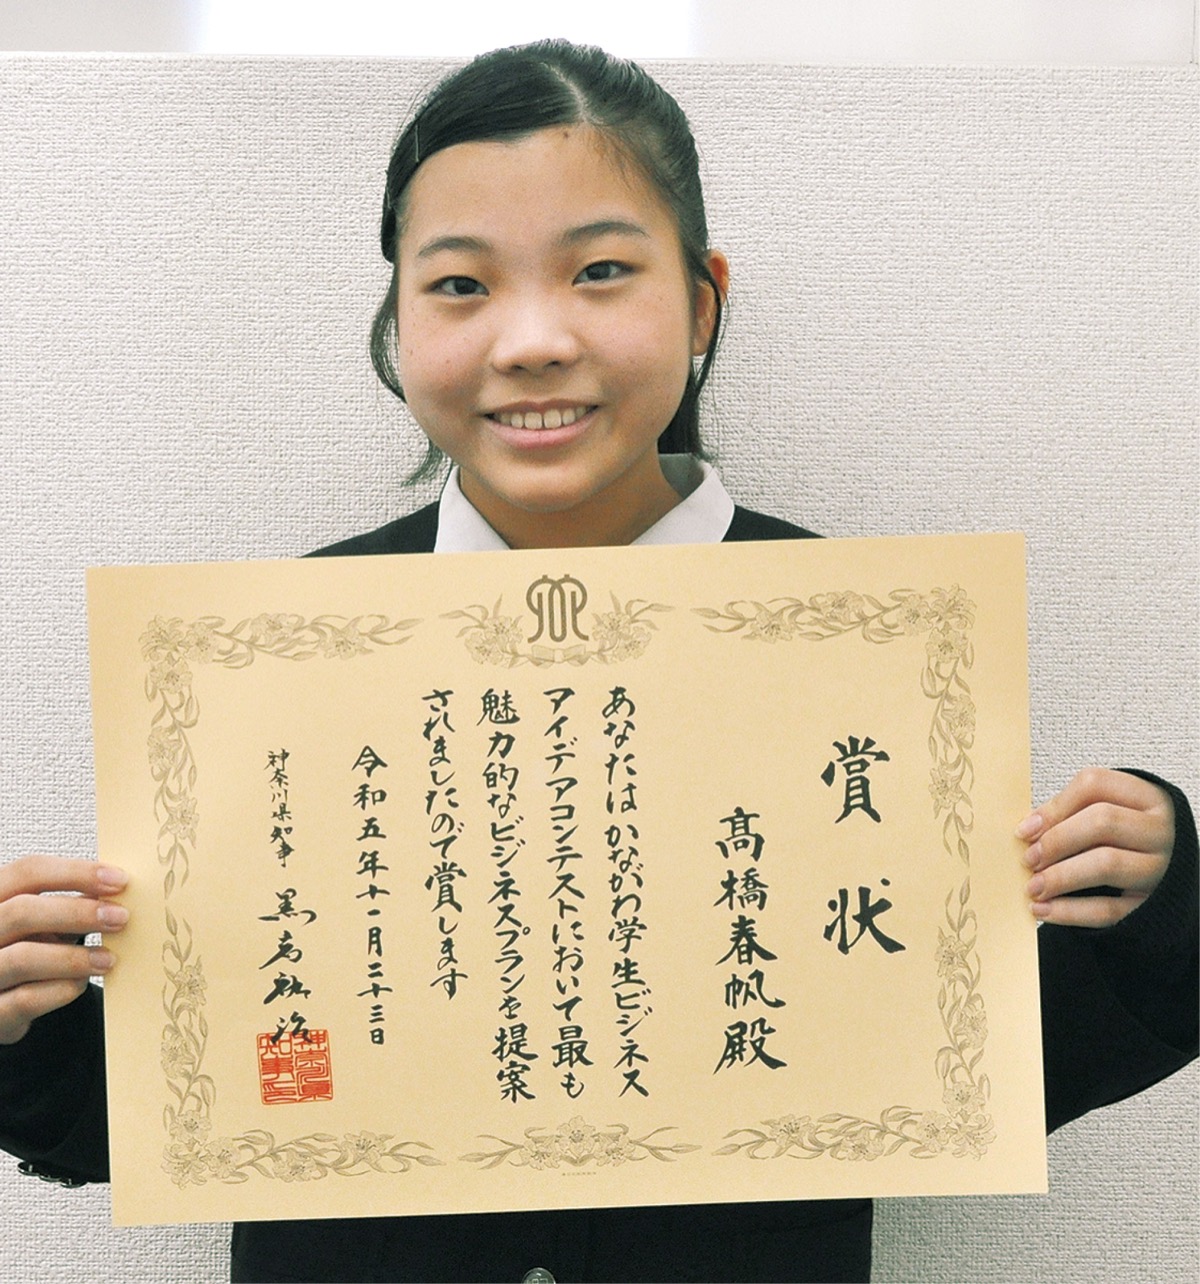 賞状
髙橋春帆殿
あなたはかながわ学生ビジネス
アイデアコンテストにおいて最も
魅力的なビジネスプランを提案
されましたので賞します
令和五年十一月二十三日
神奈川県知事 黒岩祐治
神奈川県
知事之印